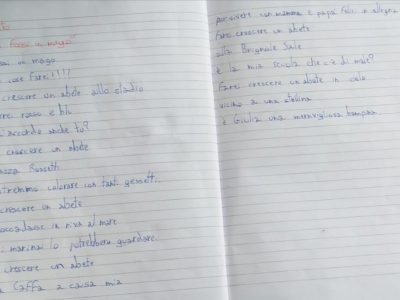 fossi un mago"
un mago
cose farei!!!!
crescere un abete allo stadio
rosso e blu
d'accordo anche tu?
crescere un abete
Rossetti
potremmo colorare con tanti gessetti
crescere un abete
in riva al mare
i marinai lo potrebbero guardare
crescere un abete
Caffa a casa mia
per vivere con mamma e papà felici in allegria
farei crescere un abete
alla Brignole Sale
è la mia scuola che c'è di male?
farei crescere un abete in cielo
vicino a una stellina
è Giulia una meravigliosa bambina